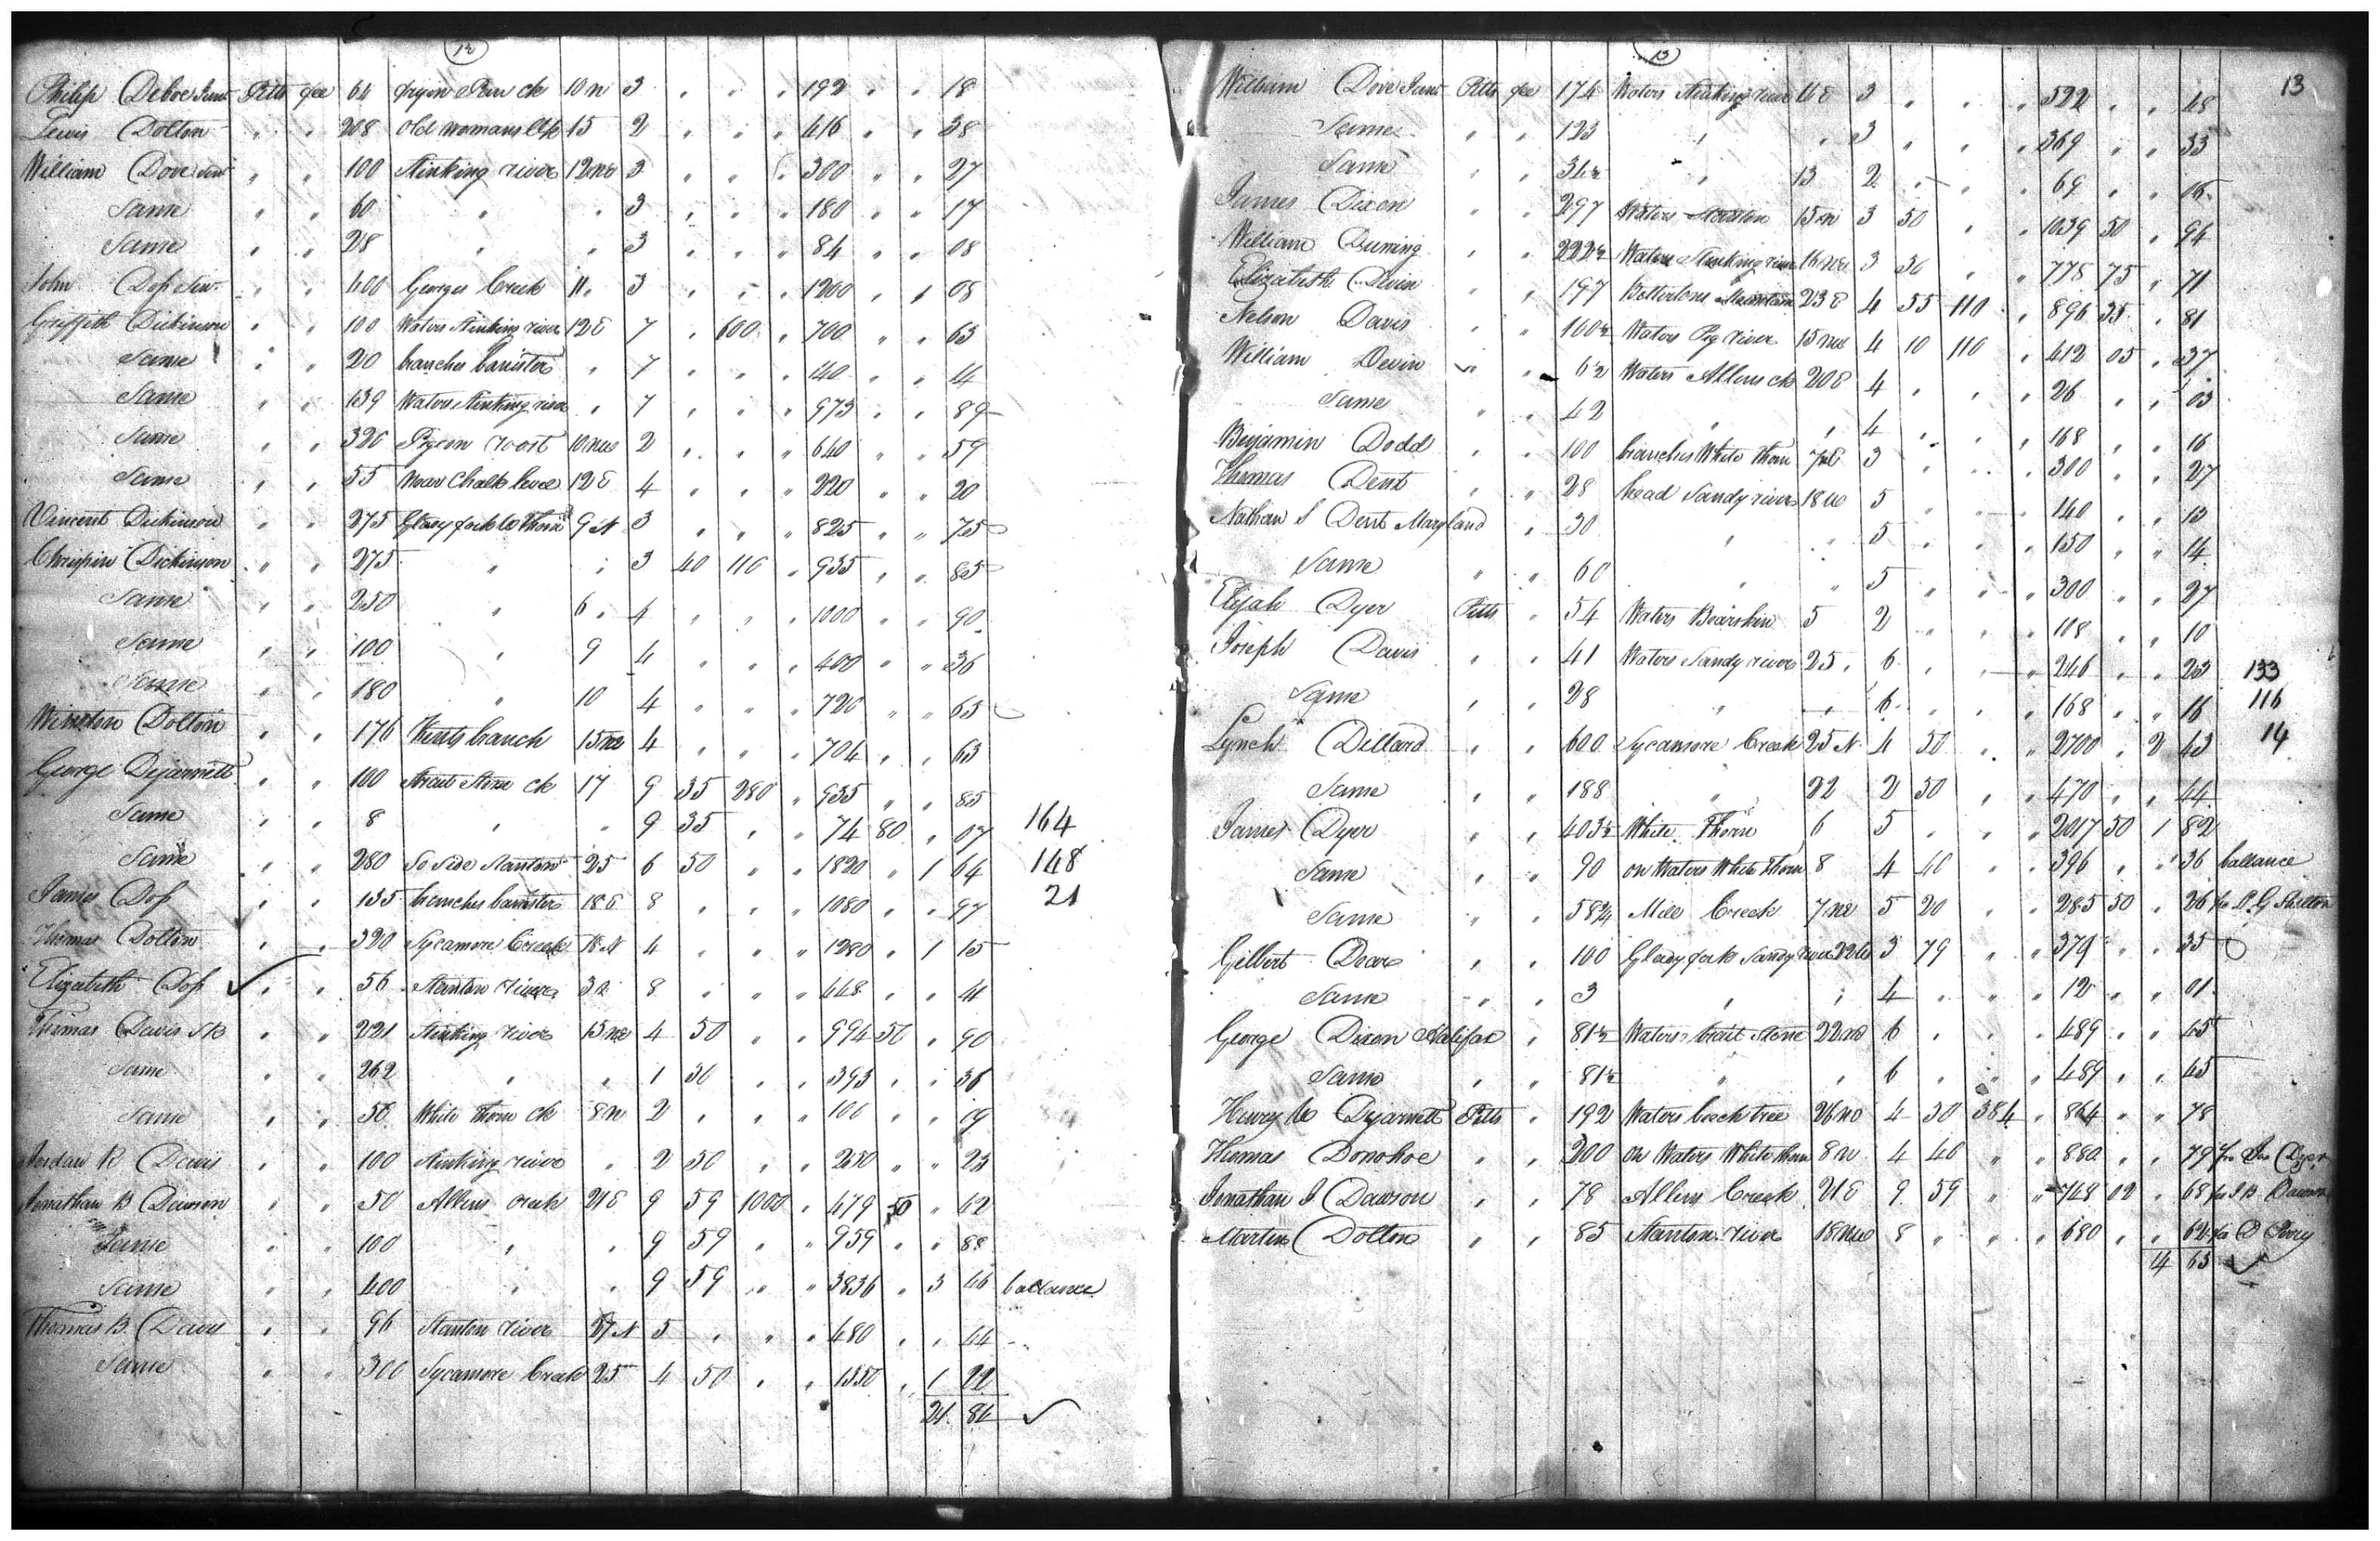 12
Philip Deboe Junr Pitts fee 64 fryin Pan ck 10 n 3 " " " 192 " " 18
Lewis Dolton " " 208 Old womans Ck 15 2 " " " 416 " " 38
William Dove Senr " " 100 Stinking river 12 ne 3 " " " 300 " " 27
Same " " 60 " " 3 " " " 180 " " 17
Same " " 28 " " 3 " " " 84 " " 08
John Doss Senr " " 400 Georges Creek 11 " 3 " " " 1200 " 1 08
Griffith Dickinson " " 100 Waters Stinking river 12 E 7 " 600 " 700 " " 63
Same " " 20 branches banister " 7 " " " 140 " " 14
Same " " 139 Waters Stinking river " 7 " " " 973 " " 89
Same " " 320 Pigeon roost 10 ne 2 " " " 640 " " 59
Same " " 55 Near Chalk level 12 E 4 " " " 220 " " 20
Vincent Dickinson " " 275 Glady fork W Thorn 9 N 3 " " " 825 " " 75
Chrispin Dickinson " " 275 " " 3 40 110 " 935 " " 85
Same " " 250 " 6 " 4 " " " 1000 " " 90
Same " " 100 " 9 4 " " " 400 " " 36
Same " " 180 " 10 4 " " " 720 " " 65
Winston Dolton " " 176 Kents branch 15 ne 4 " " " 704 " " 63
George Dejarnett " " 100 Strait Stone ck 17 9 35 280 " 935 " " 85
Same " " 8 " " 9 35 " " 74 80 " 07 164
Same " " 280 So Side Stanton 25 6 50 " " 1820 " 1 64 148
James Doss " " 135 branches banister 18 E 8 " " " 1080 " " 97 21
Thomas Dolton " " 320 Sycamore Creek 18 N 4 " " " 1280 " 1 15
Elizabeth Doss ✓ " " 56 Stanton river 32 8 " " " 448 " " 41
Thomas Davis " " 221 Stinking river 15 ne 4 50 " " 994 50 " 90
Same " " 262 " " 1 50 " " 393 " " 36
Same " " 50 White thorn ck 8 n 2 " " " 100 " " 09
Jordan R Davis " " 100 Stinking river " 2 50 " " 250 " " 23
Jonathan B Dawson " " 50 Allens creek 21 E 9 59 1000 " 479 50 " 42
Same " " 100 " " 9 59 " " 959 " " 88
Same " " 400 " " 9 59 " " 3836 " 3 46 ballance
Thomas B. Davis " " 96 Stanton river 27 N 5 " " " 480 " " 44
Same " " 300 Sycamore Creek 25 4 50 " " 1350 " 1 22
21 84 ✓
13
13
William Dove Junr Pitts fee 174 Waters Stinking river 11 E 3 " " " 522 " " 48
Same " " 123 " " 3 " " " 369 " " 33
Same " " 34½ " 13 2 " " " 69 " " 06
James Dixon " " 297 Waters Stanton 15 n 3 50 " " 1039 50 " 94
William Duning " " 222½ Waters Stinking river 16 ne 3 50 " " 778 75 " 71
Elizabeth Devin " " 197 Bettertons Mountain 23 E 4 55 110 " 896 35 " 81
Nelson Davis " " 100½ Waters Pig river 15 nw 4 10 110 " 412 05 " 37
William Devin " " 6½ Waters Allens ck 20 E 4 " " " 26 " " 03
Same " " 42 " " 4 " " " 168 " " 16
Benjamin Dodd " " 100 branches White thorn 7 E 3 " " " 300 " " 27
Thomas Dent " " 28 head Sandy river 18 W 5 " " " 140 " " 13
Nathan S Dent Maryland " 30 " " 5 " " " 150 " " 14
Same " " 60 " " 5 " " " 300 " " 27
Elijah Dyer Pitts " 54 Waters Bearskin 5 2 " " " 108 " " 10
Joseph Davis " " 41 Waters Sandy river 25 " 6 " " " 246 " " 23 133
Same " " 28 " " 6 " " " 168 " " 16 116
Lynch Dillard " " 600 Sycamore Creek 25 N 4 50 " " 2700 " 2 43 14
Same " " 188 " 22 2 50 " " 470 " " 44
James Dyer " " 403½ White Thorn 6 5 " " " 2017 50 1 82
Same " " 90 on Waters White thorn 8 4 40 " " 396 " " 36 ballance
Same " " 58¾ Mill Creek 7 ne 5 20 " " 285 50 " 26 fr Shelton
Gilbert Dear " " 100 Glady fork Sandy river 22 W 3 79 " " 379 " " 35
Same " " 3 " " 4 " " " 12 " " 01
George Dixon Halifax " 81½ Waters Strait Stone 22 ne 6 " " " 489 " " 45
Same " " 81½ " " 6 " " " 489 " " 45
Henry Dejarnett Pitts " 192 Waters beech tree 26 ne 4 50 384 " 864 " " 78
Thomas Donohoe " " 200 On Waters White thorn 8 n 4 40 " " 880 " " 79 fr Jas Dyer
Jonathan J Dawson " " 78 Allens Creek 21 E 9 59 " " 748 02 " 68 fr J B Dawson
Martin Dolton " " 85 Stanton river 18 ne 8 " " " 680 " " 62 fr D Perry
14 63 ✓